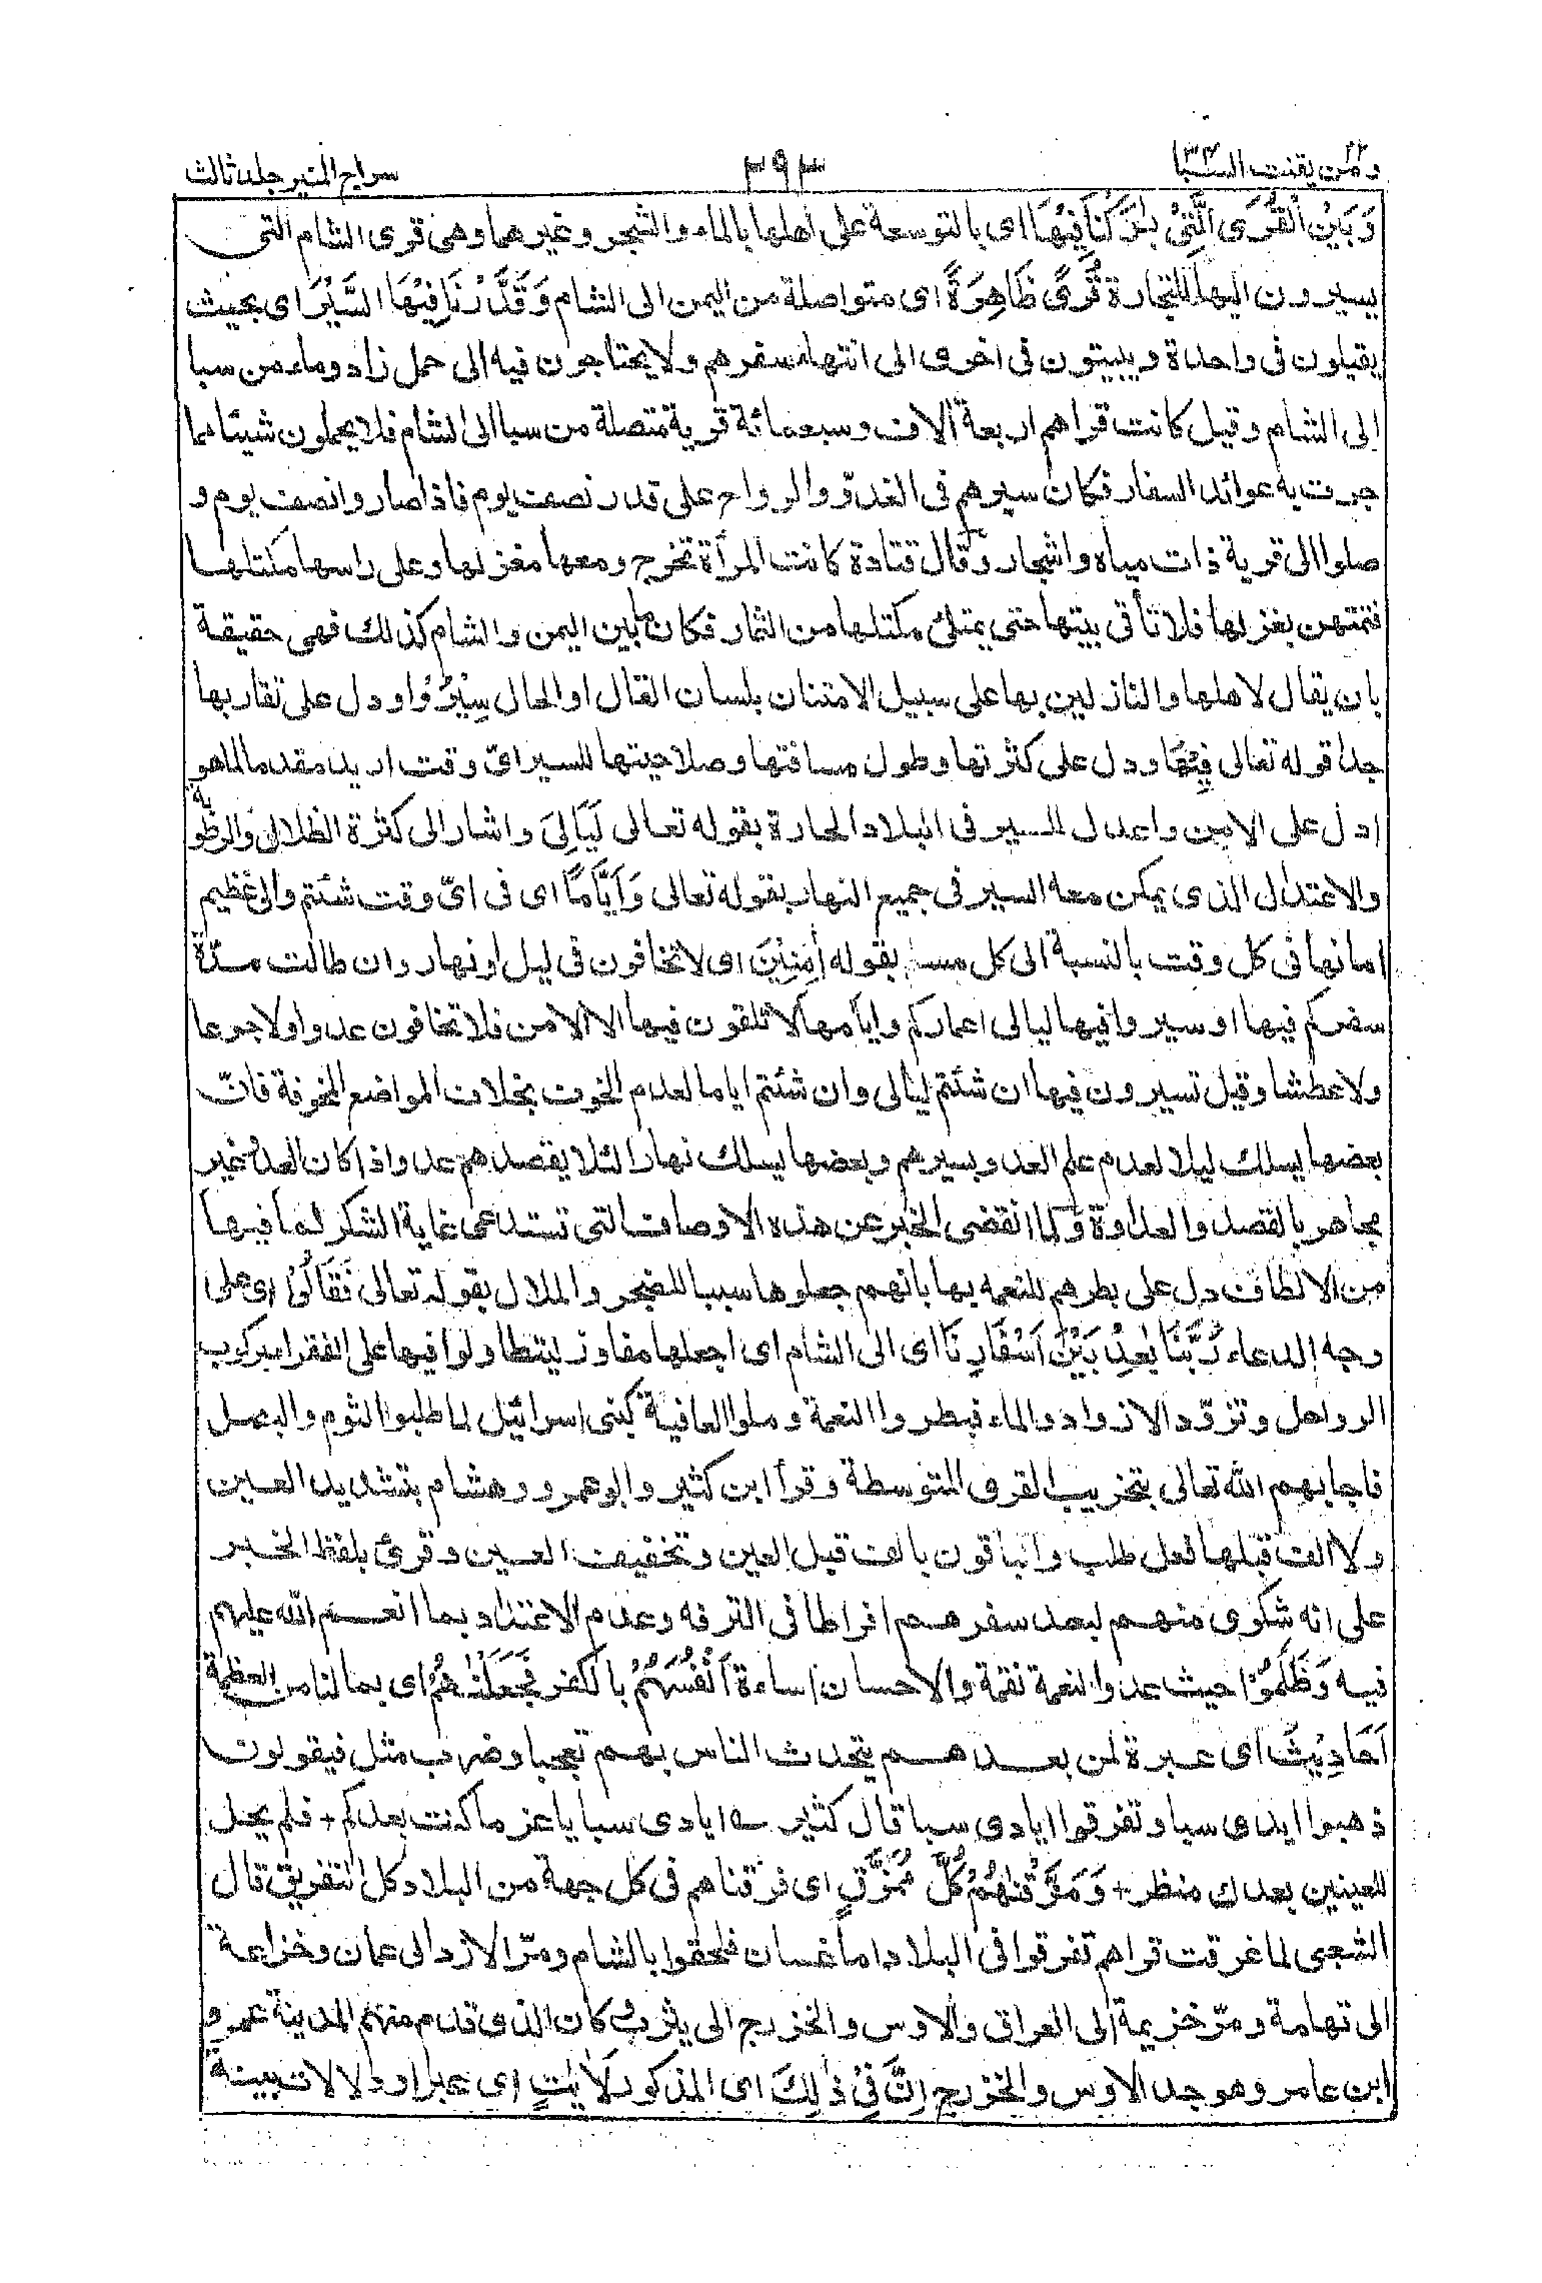 ومن يقنت ٢٢ السبا ٣٤
٣٩٣
سراج المنير جلد ثالث
وَبَيْنَ الْقُرَى الَّتِيْ بٰرَكْنَا فِيْهَا اى بالتوسعة على اهلها بالماء والشجر وغيرهما وهى قرى الشام التى
يسيرون اليها للتجارة قُرًى ظَاهِرَةً اى متواصلة من اليمن الى الشام وَقَدَّرْنَا فِيْهَا السَّيْرَ اى بحيث
يقيلون فى واحدة ويبيتون فى اخرى الى انتهاء سفرهم ولا يحتاجون فيه الى حمل زاد وماء من سبا
الى الشام وقيل كانت قراهم اربعة آلاف وسبعمائة قرية متصلة من سبا الى الشام فلا يحملون شيئا مما
جرت به عوائد السفار فكان سيرهم فى الغدوّ والرواح على قدر نصف يوم فاذا صاروا نصف يوم و
صلوا الى قرية ذات مياه واشجار وقال قتادة كانت المرأة تخرج ومعها مغزلها وعلى راسها مكتلها
فتمتهن بغزلها فلا تأتى بيتها حتى يمتلئ مكتلها من الثمار فكان ما بين اليمن والشام كذلك فهى حقيقة
بان يقال لاهلها والنازلين بها على سبيل الامتنان بلسان القال او الحال سِيْرُوْا ودل على تقاربها
جدا قوله تعالى فِيْهَا ودل على كثرتها وطول مسافتها وصلاحيتها للسير اىّ وقت اريد مقدما لما هو
ادل على الامن واعدل للسير فى البلاد الحارة بقوله تعالى لَيَالِيَ واشار الى كثرة الظلال والرطوبة
والاعتدال الذى يمكن معه السير فى جميع النهار بقوله تعالى وَاَيَّامًا اى فى اىّ وقت شئتم والى عظيم
امانها فى كل وقت بالنسبة الى كل بقوله اٰمِنِيْنَ اى لا تخافون فى ليل او نهار وان طالت مدّة
سفركم فيها او سيروا فيها ليالى اعماركم وايامها لا تلقون فيها الا الامن فلا تخافون عدوا ولا جوعا
ولا عطشا وقيل تسيرون فيها ان شئتم ليالى وان شئتم اياما لعدم الخوف بخلاف المواضع المخوفة فانّ
بعضها يسلك ليلا لعدم علم العدو بسيرهم وبعضها يسلك نهارا لئلا يقصدهم عدو اذا كان العدو غير
مجاهر بالقصد والعداوة ولما انقضى الخبر عن هذه الاوصاف التى تستدعى غاية الشكر لما فيها
من الالطاف دل على بطرهم للنعمة بها بانهم جعلوها سببا للضجر والملال بقوله تعالى فَقَالُوْا اى على
وجه الدعاء رَبَّنَا بٰعِدْ بَيْنَ اَسْفَارِنَا اى الى الشام اى اجعلها مفاوز ليتطاولوا فيها على الفقراء بركوب
الرواحل وتزوّد الازواد والماء فبطروا النعمة وملوا العافية كبنى اسرائيل لما طلبوا الثوم والبصل
فاجابهم الله تعالى بتخريب القرى المتوسطة وقرأ ابن كثير وابو عمرو وهشام بتشديد العين
ولا الف قبلها فعل طلب والباقون بالف قبل العين وتخفيف العين وقرئ بلفظ الخبر
على انه شكوى منهم لبعد سفرهم افراطا فى الترفه وعدم الاعتداد بما انعم الله عليهم
فيه وَظَلَمُوْا حيث عدوا النعمة نقمة والاحسان اساءة اَنْفُسَهُمْ بالكفر فَجَعَلْنٰهُمْ اى بما لنا من العظمة
اَحَادِيْثَ اى عبرة لمن بعدهم يتحدث الناس بهم تعجبا وضرب مثل فيقولون
ذهبوا ايدى سبا وتفرقوا ايادى سبا قال كثير ؎ ايادى سبا يا عز ما كنت بعدكم + فلم يحل
للعينين بعدك منظر + وَمَزَّقْنٰهُمْ كُلَّ مُمَزَّقٍ اى فرقناهم فى كل جهة من البلاد كل التفريق قال
الشعبى لما غرقت قراهم تفرقوا فى البلاد اما غسان فلحقوا بالشام ومرّ الازد الى عمان وخزاعة
الى تهامة ومرّ خزيمة الى العراق والاوس والخزرج الى يثرب وكان الذى قدم منهم المدينة عمرو
ابن عامر وهو جد الاوس والخزرج اِنَّ فِيْ ذٰلِكَ اى المذكور لَاٰيٰتٍ اى عبرا ودلالات بينة